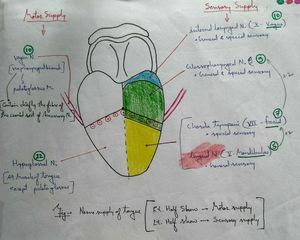 Motor Supply
Sensory Supply
(10)
vagus N.
(via pharyngeal branch)
↓
palatoglossus m.
(contain chiefly the fibres of
the cranial root of Accessory N.)
(12)
Hypoglossal N.
[all muscles of tongue
except palatoglossus]
(10)
internal laryngeal N. (X - Vagus)
• General & special sensory
(9)
Glossopharyngeal N.
• General & special sensory
(7)
Chorda Tympani (VII - facial)
- special sensory
Lingual N. (V - Mandibular)
• General sensory
Fig: Nerve supply of tongue
[Rt. Half Show → Motor supply
Lt. Half show → Sensory supply]